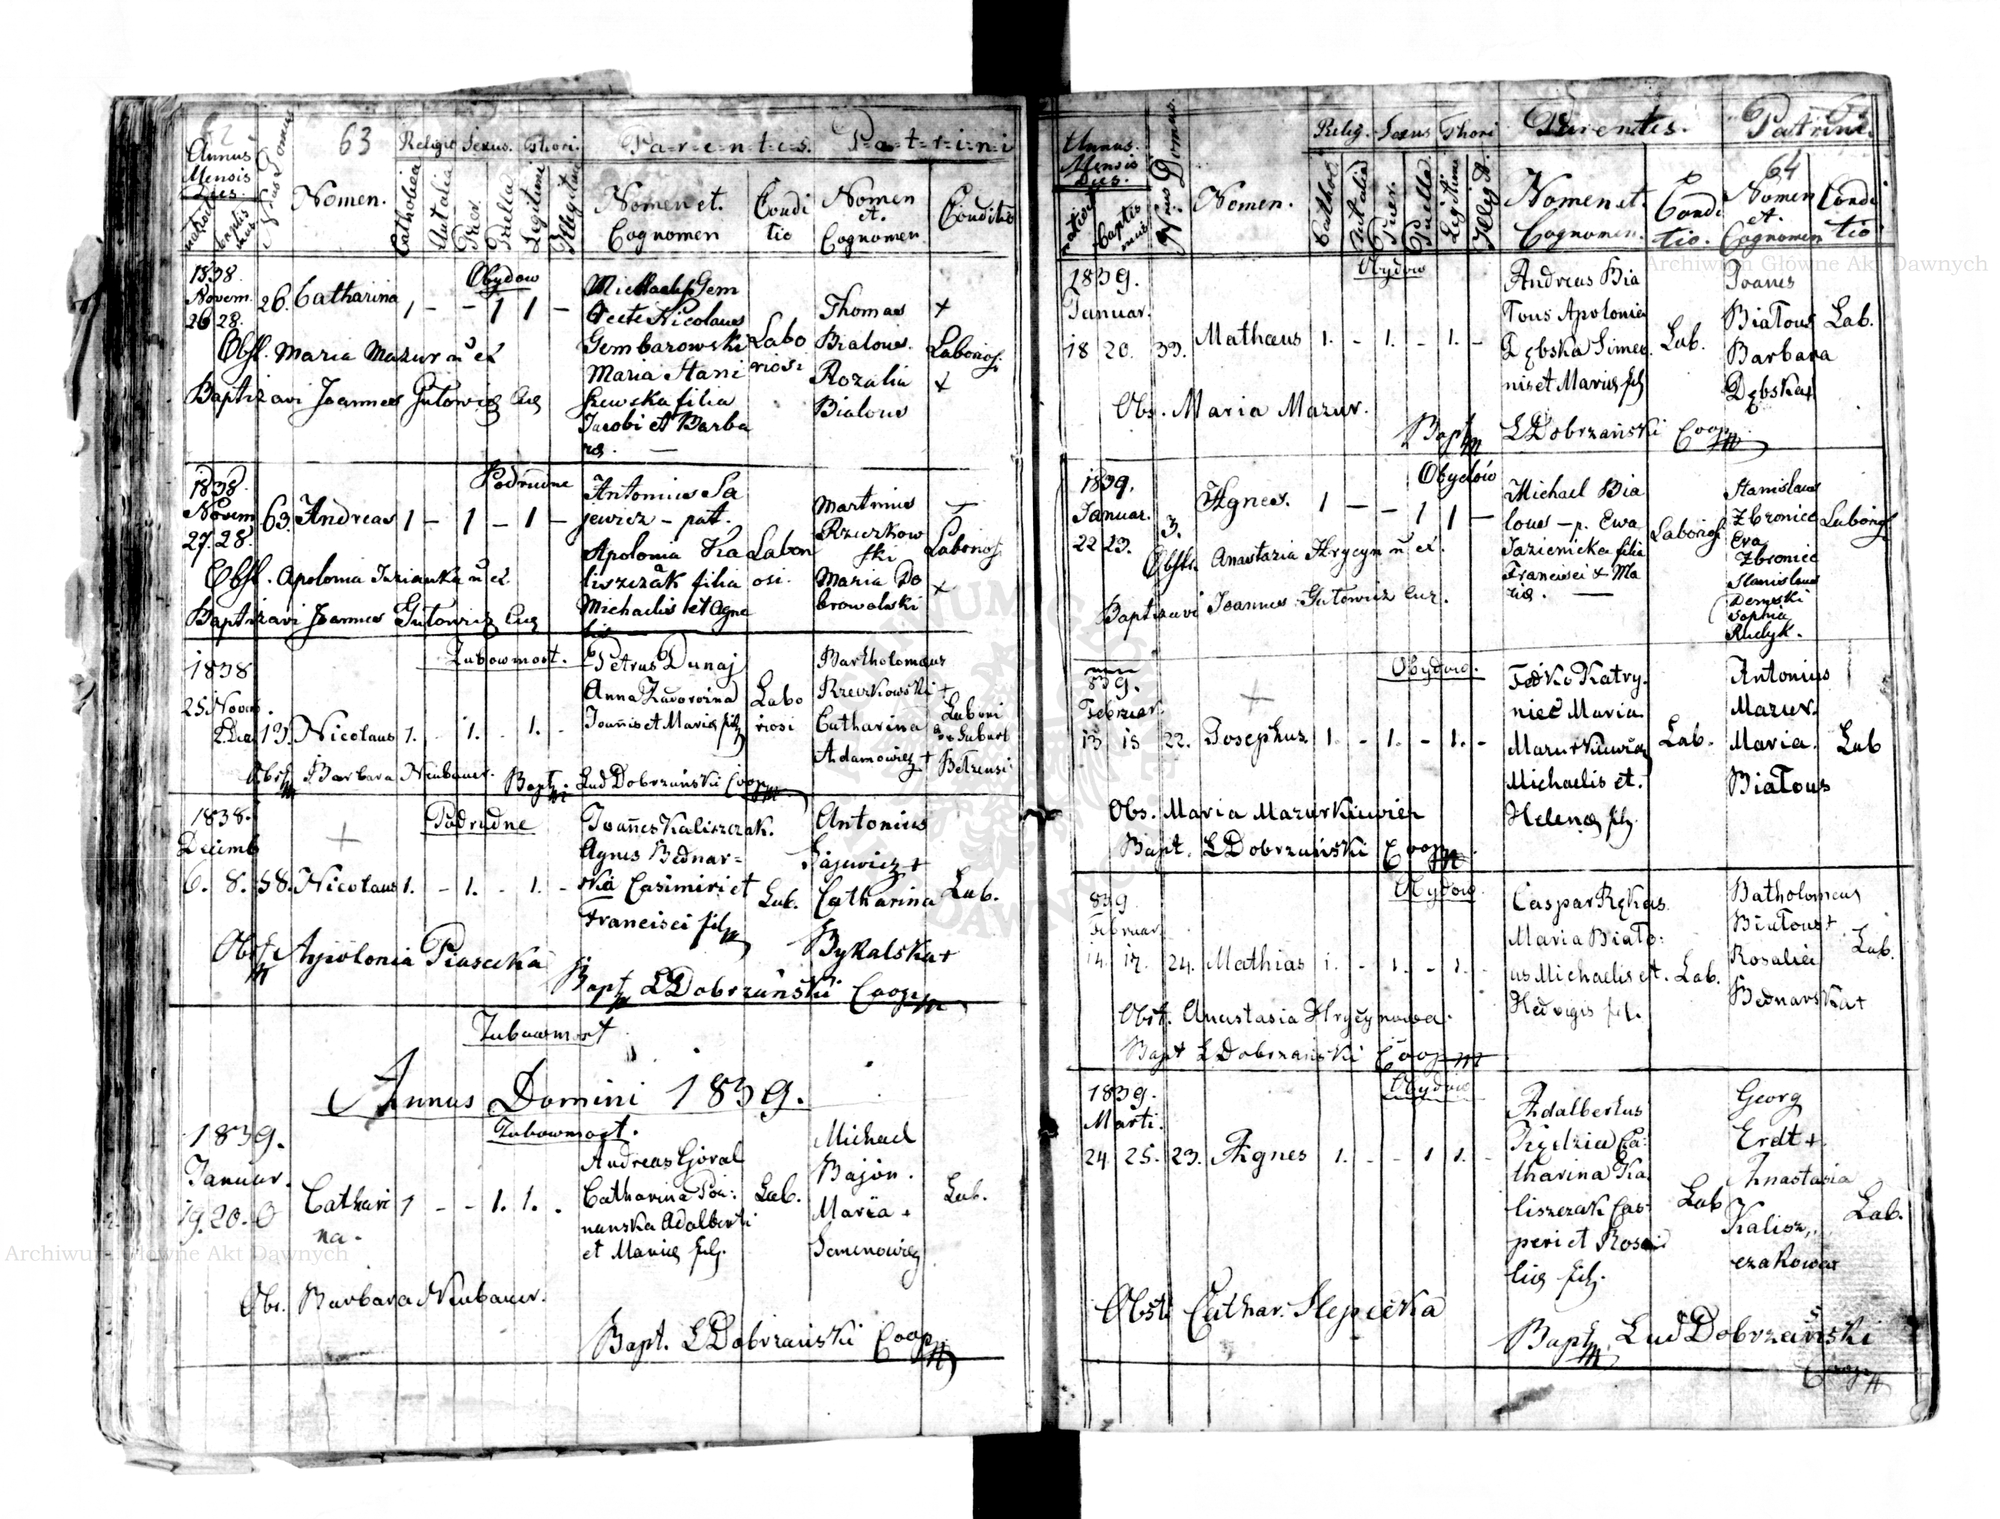 63
Annus
Mensis
Dies.
Nrus Domus
Nomen.
Religio
Sexus.
Thori.
P=a=r=e=n=t=e=s.
P=a=t=r=i=n=i
Catholica
Aut alia
Puer.
Puella
Legitimi
Illegitimi
Nomen et.
Cognomen
Condi
tio
Nomen
et.
Cognomen.
Conditio
1838.
Novem.
26 28.
26.
Catharina
1 - - 1 1 -
Obydow
Gem
recte Nicolaus
Gembarowski
Maria Stani
szewska filia
Jacobi et Barba
ra. —
Labo
riosi
Thomas +
Bialous.
Rozalia +
Bialous
Laborios.
Obst. Maria Mazur n ex
Baptizavi Joannes Gutowicz Cur
1838.
Novem
27. 28.
63.
Andreas
1 - 1 - 1 -
Podrudne
Antonius Sa
jewicz - pat.
Apolonia Ka
liszczak filia
Michaelis et Agne
tis —
Labori
osi.
Martinus +
Rzeczkow
ski
Maria Do +
browolski
Laborios.
Obst. Apolonia n ex
Baptizavi Joannes Gutowicz Cur
1838
25 Novem.
13.
Nicolaus
1. - 1. - 1. -
Zubowmost.
Petrus Dunaj
Anna
Joannis et Mariae fil.
Labo
riosi
Bartholomeus
Rzeczkowski +
Catharina
Adamowicz +
Obst. Barbara Neubauer.
Bapt. Lud Dobrzański Coop
1838.
Decemb
6. 8. 58.
Nicolaus
1. - 1. - 1. -
Podrudne
Joannes Kaliszczak.
Agnes Bednar=
ska Casimiri et
Francisci fil.
Lab.
Antonius
Sajewicz +
Catharina
Bykalska +
Lab.
Obst. Apolonia Piasecka
Bapt. L Dobrzański Coop.
Zubowmost
Annus Domini 1839.
Zubowmost.
1839.
Januar.
19. 20.
Cathari
na.
1 - - 1. 1. -
Andreas Goral
Catharina
Adalberti
et Mariae fil.
Lab.
Michael
Bajon.
Maria +
Semenowicz
Lab.
Obs. Barbara Neubauer.
Bapt. L Dobrzański Coop
Annus.
Mensis
Dies.
Nrus Domus.
Nomen.
Relig.
Sexus
Thori
Parentes.
Patrini.
64
Cathol.
Aut alia
Puer.
Puella
Legitimi
Illegit.
Nomen et.
Cognomen.
Condi
tio.
Nomen
et.
Cognomen
Condi
tio
1839.
Januar.
18 20. 33.
Mathæus
1. - 1. - 1. -
Obydow
Andreas Bia
łous Apolonia
Dębska Simeo
nis et Mariae fil
Lab.
Joanes
Białous
Barbara
Dębska +
Lab.
Obs. Maria Mazur.
Bapt. L Dobrzański Coop
1839.
Januar.
22 23.
3.
Agnes.
1 - - 1 1 -
Obydów
Michael Bia
lous - p. Ewa
Jazienicka filia
Francisci & Ma
ria. —
Laborios.
Stanislaus
Zbroniec
Eva
Zbroniec
Stanislaus
Dempski
Sophia
Rudyk.
Laborios.
Obst. Anastazia Hrycyn n ex.
Baptizavi Joannes Gutowicz Cur.
839.
Februar.
13 15 22.
Josephus
1. - 1. - 1. -
Obydow.
Fedko Katry.
niec Maria
Mazurkiewicz
Michaelis et.
Helenae fil.
Lab.
Antonius
Mazur.
Maria.
Białous
Lab
Obs. Maria Mazurkiewicz
Bapt. L Dobrzański Coop
839.
Februar.
14. 17. 24.
Mathias
1. - 1. - 1. -
Obydow
Caspar Rękas
Maria Biało:
us Michaelis et.
Hedvigis fil.
Lab.
Batholomeus
Białous +
Rosalia
Bednarska +
Lab.
Obst. Anastasia Hrycynowa.
Bapt L Dobrzański Coop
1839.
Marti.
24. 25. 23.
Agnes
1. - - 1 1. -
Obydow
Adalbertus
Ca:
tharina Ka
liszczak Cas=
peri et Rosa
liae fil.
Lab
Georg
Erdt +
Anastasia
Kalisz,,
czakowa
Lab.
Obst. Cathar. Slepecka
Bapt. Lud Dobrzański
Coop
Archiwum Główne Akt Dawnych
Archiwum Główne Akt Dawnych